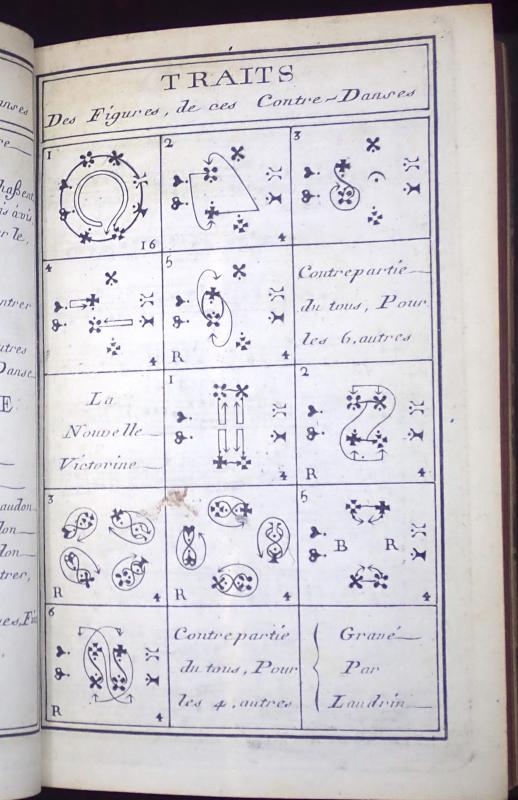 TRAITS
Des Figures, de ces Contre-Danses
1
16
2
4
3
4
4
5
R
4
Contrepartie
du tous, Pour
les 6, autres
La
Nouvelle
Victorine
1
4
2
R
4
3
R
4
4
R
4
5
B
R
4
6
R
4
Contrepartie
du tous, Pour
les 4, autres
Gravé
Par
Laudrin